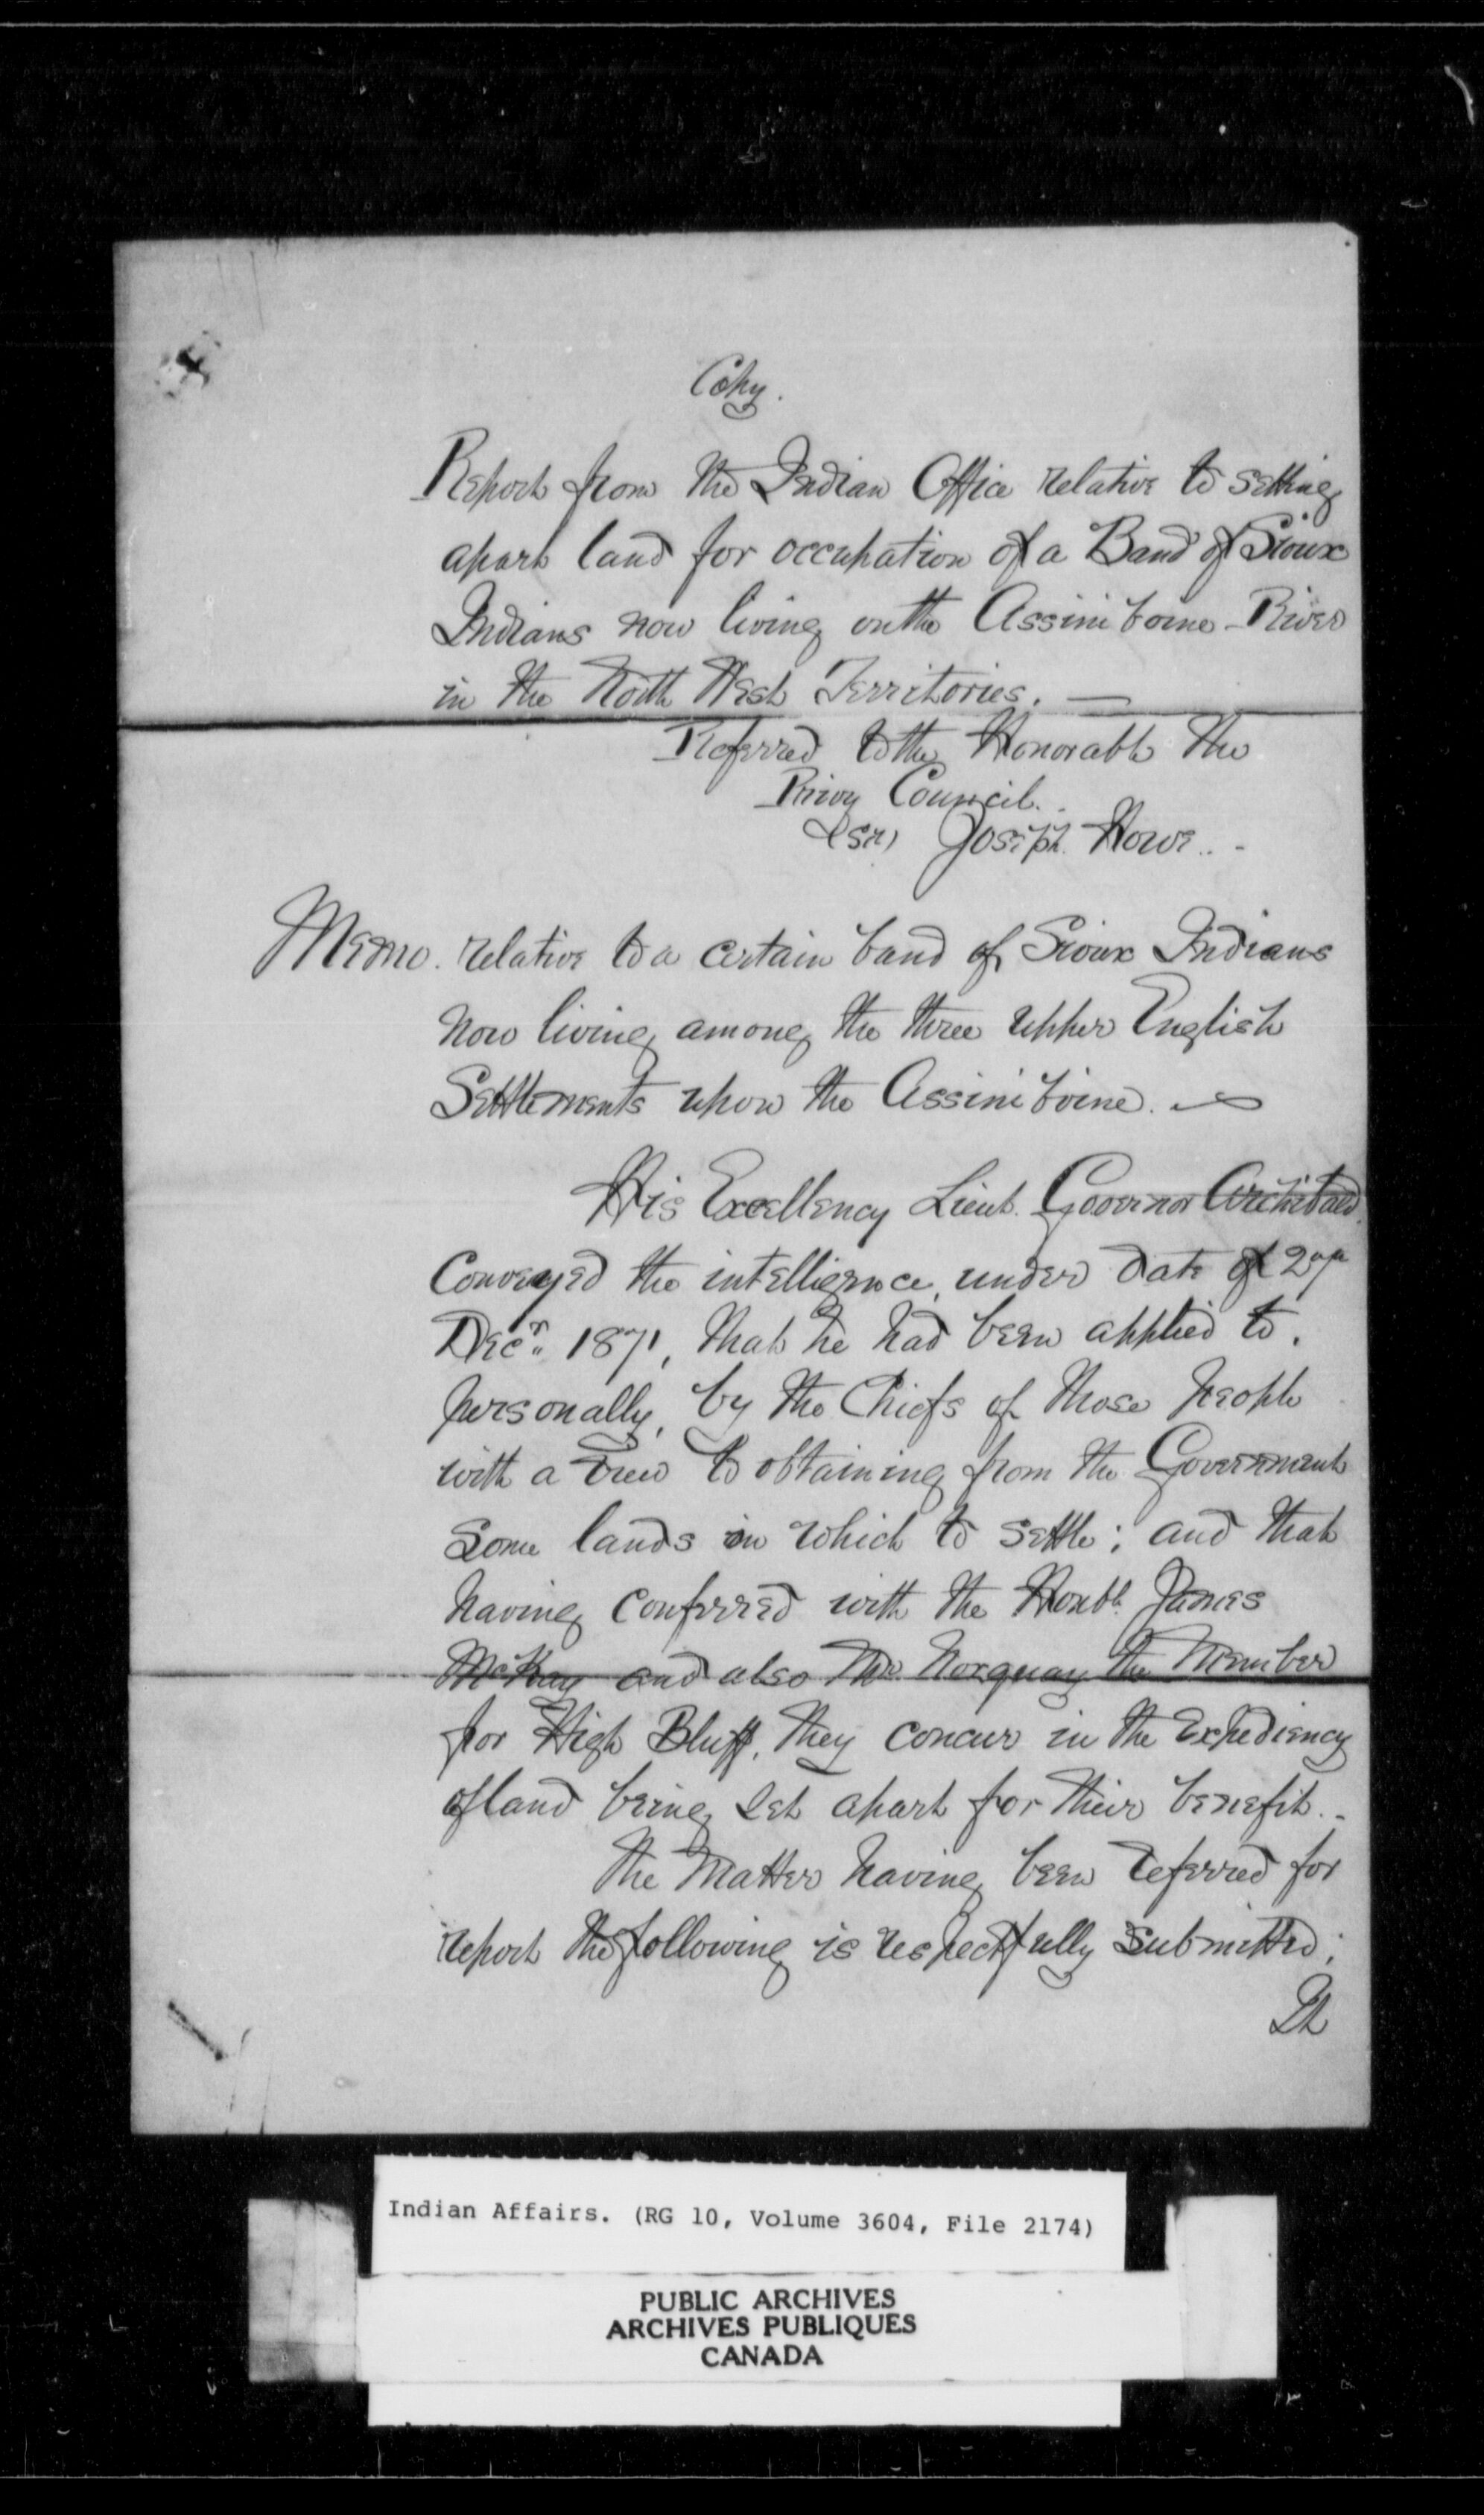 Copy.
Report from the Indian Office relative to setting
apart land for occupation of a Band of Sioux
Indians now living on the Assiniboine River
in the North West Territories. —
Referred to the Honorable the
Privy Council.
(sn) Joseph Howe.
Memo. relative to a certain band of Sioux Indians
now living among the three upper English
Settlements upon the Assiniboine.
His Excellency Lieut. Governor Archibald
Conveyed the intelligence, under date of
Decr. 1871, that he had been applied to,
personally, by the Chiefs of those people
with a view to obtaining from the Government
some lands on which to settle; and that
having conferred with the Honbl. James
McKay and also Mr. Norquay the Member
for High Bluff, they concur in the Expediency
of land being set apart for their benefit.
The Matter having been referred for
report the following is respectfully submitted;
It
Indian Affairs. (RG 10, Volume 3604, File 2174)
PUBLIC ARCHIVES
ARCHIVES PUBLIQUES
CANADA